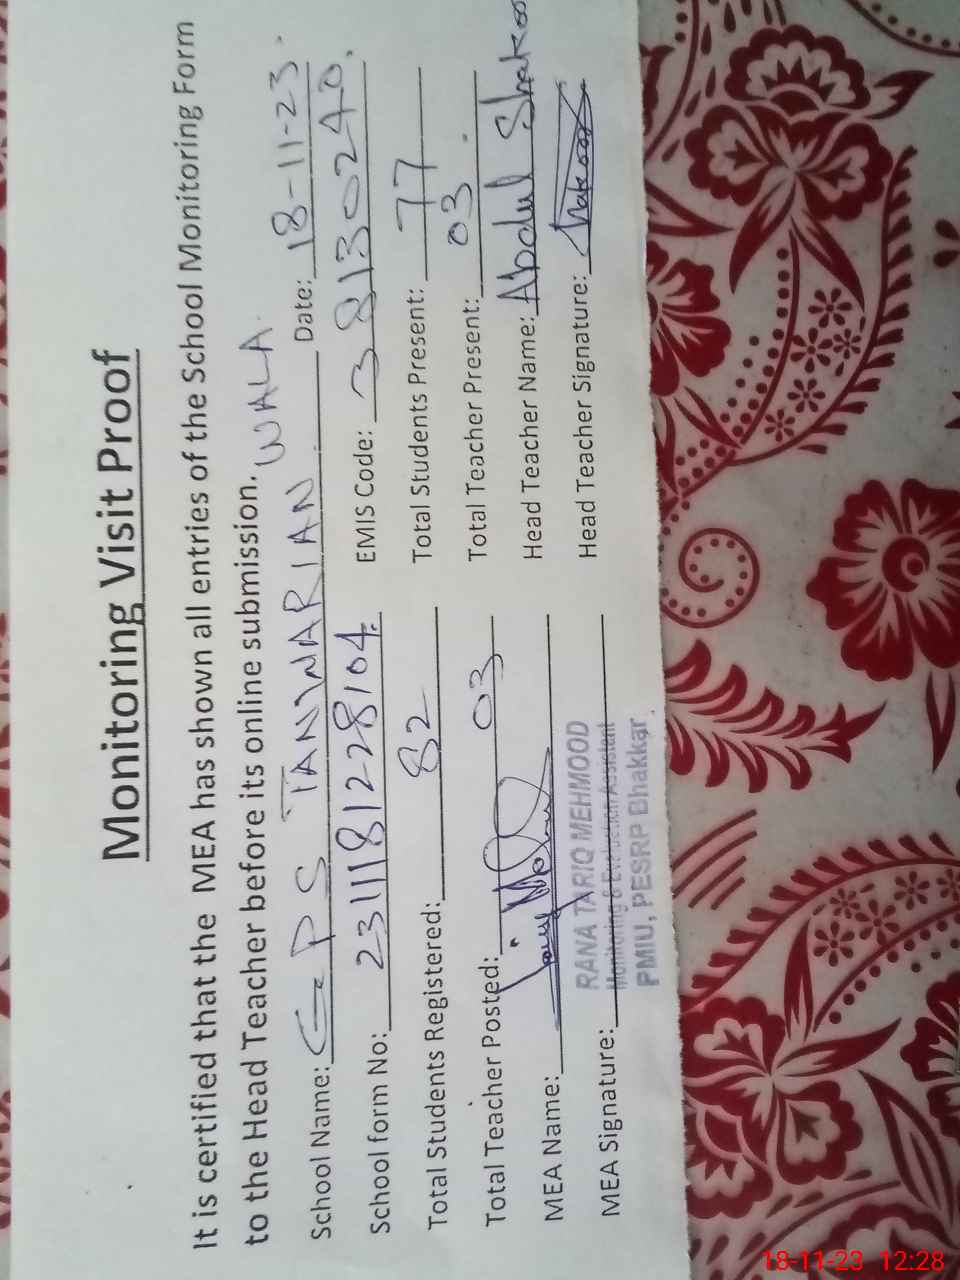 Monitoring Visit Proof
It is certified that the MEA has shown all entries of the School Monitoring Form
to the Head Teacher before its online submission.
School Name: G P S TANWARIAN WALA. Date: 18-11-23.
School form No: 2311181228104. EMIS Code: 38130240.
Total Students Registered: 82 Total Students Present: 77
Total Teacher Posted: 03 Total Teacher Present: 03.
MEA Name: Head Teacher Name: Abdul Shakoo
MEA Signature: Head Teacher Signature: Shakoor
RANA TARIQ MEHMOOD
Monitoring & Evaluation Assistant
PMIU, PESRP Bhakkar.
18-11-23 12:28